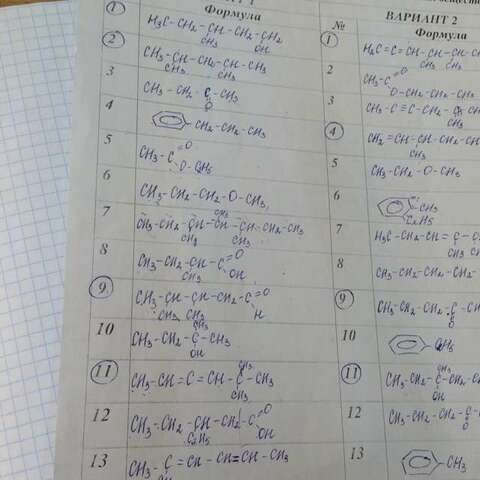 Формула
1
H3C-CH2-CH-CH2-CH2
CH3 OH
2
CH3-CH-CH2-CH-CH3
CH3 CH3
3
CH3-CH2-C-CH3
O
4
CH2-CH2-CH3
5
CH3-C
O
O-C2H5
6
CH3-CH2-CH2-O-CH3
7
CH3
CH3-CH2-CH-CH-CH-CH2-CH3
CH3 CH3
8
CH3-CH2-CH-C
O
OH
CH3
9
CH3-CH-CH-CH2-C
O
H
CH3 CH3
10
CH3
CH3-CH2-C-CH3
OH
11
CH3
CH3-CH=C=CH-C-CH3
CH3
12
CH3-CH2-CH-CH2-C
O
OH
C2H5
13
CH3-C=CH-CH=CH-CH3
ВАРИАНТ 2
№
Формула
1
CH3 CH3
2
CH3-C
O
O-CH2-CH2-CH3
3
CH3-C≡C-CH2-CH-CH3
CH3
4
CH2=CH-CH-CH2-CH
CH3
5
CH3-CH2-O-CH3
6
CH3
C2H5
7
H3C-CH2-CH=C-C
CH3
8
CH3-CH2-CH2-CH2-
9
CH3-CH2-CH2-C-CH
O
10
11
CH3
CH3-CH2-C-CH2-CH
OH
12
CH3-CH2-CH2-C
O
13
CH3